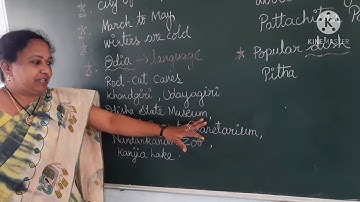 city of
March to May
winters are cold
Odia → language
Root-Cut Caves
Khandgiri, Udayagiri
State Museum,
Planetarium,
Nandankanan Zoo,
Kanjia Lake.
Pattachitra
* Popular dish
Pitha
KINEMASTER